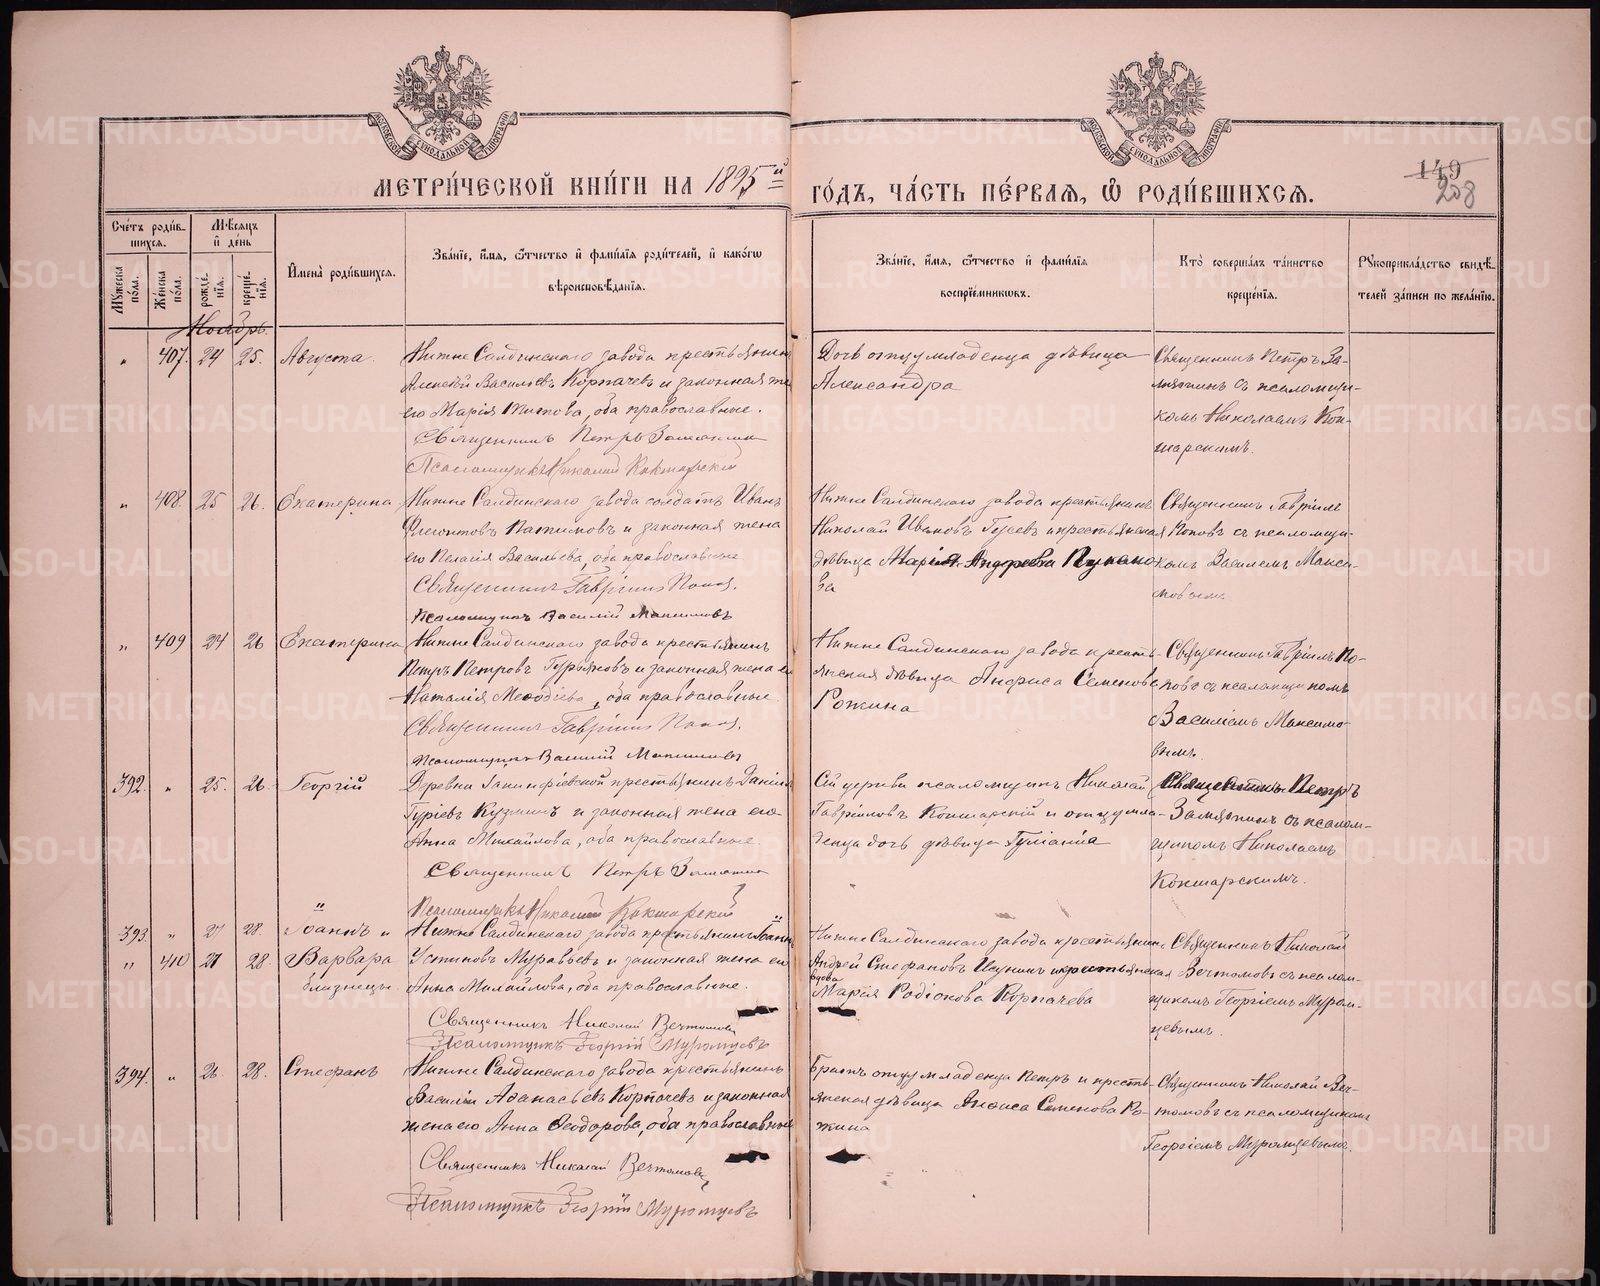 МОСКОВСКОЙ СѴНОДАЛЬНОЙ ТИПОГРАФІИ
МОСКОВСКОЙ СѴНОДАЛЬНОЙ ТИПОГРАФІИ
МЕТРИ́ЧЕСКОЙ КНИ́ГИ НА 1895й ГО́ДЪ, ЧА́СТЬ ПЕ́РВАЯ, Ѡ РОДИ́ВШИХСЯ.
149
208
Сче́тъ роди́вшихся.
Му́жеска по́ла.
Же́нска по́ла.
Мѣ́сяцъ и де́нь
рожде́нїя.
креще́нїя.
Имена̀ роди́вшихся.
Зва́нїе, и́мя, о́тчество и фами́лїя роди́телей, и како́гѡ вѣроисповѣ́данїя.
Зва́нїе, и́мя, о́тчество и фами́лїя воспрїе́мникѡвъ.
Кто̀ соверша́лъ та́инство креще́нїя.
Рукоприкла́дство свидѣ́телей за́писи по жела́нїю.
Ноябрь.
„ 407. 24 25. Августа.
Нижне Салдинскаго завода крестьянинъ
Алексѣй Васильевъ Корпачевъ и законная же
его Марія Титова, оба православные.
Священникъ Петръ Замятинъ
Псаломщикъ Николай Кокшарскій
Дочь отцу младенца дѣвица
Александра
Священникъ Петръ За-
мятинъ съ псаломщи-
комъ Николаемъ Кок-
шарскимъ.
„ 408. 25 26. Екатерина
Нижне Салдинскаго завода солдатъ Иванъ
Флегонтовъ Патиковъ и законная жена
его Пелагія Васильева, оба православные
Священникъ Гавріилъ Поповъ.
Псаломщикъ Василій Максимовъ
Нижне Салдинскаго завода крестьянинъ
Николай Ивановъ Гусевъ и крестьянская
дѣвица Марія Андреева Пукано
ва
Священникъ Гавріилъ
Поповъ съ псаломщи-
комъ Василіемъ Макси-
мовымъ
„ 409 24 26 Екатерина
Нижне Салдинскаго завода крестьянинъ
Петръ Петровъ Гурьяновъ и законная жена е
Наталія Меѳодіева, оба православные
Священникъ Гавріилъ Поповъ.
Псаломщикъ Василій Максимовъ
Нижне Салдинскаго завода кресть-
янская дѣвица Анфиса Семенова
Рожина
Священникъ Гавріилъ По-
повъ съ псаломщикомъ
Василіемъ Максимо-
вымъ.
392. „ 25. 26. Георгій
Деревни крестьянинъ Даніилъ
Гурiевъ Кузминъ и законная жена его
Анна Михайлова, оба православные.
Священникъ Петръ Замятинъ
Псаломщикъ Николай Кокшарскій
Сей церкви псаломщикъ Николай
Гавріиловъ Кокшарскій и отцу мла-
денца дочь дѣвица Гуліанія
Священникъ Петръ
Замятинъ съ псалом-
щикомъ Николаемъ
Кокшарскимъ.
393. „ 27 28. Іоаннъ и
„ 410 27 28. Варвара
близнецы.
Нижне Салдинскаго завода крестьянинъ Іоаннъ
Устиновъ Муравьевъ и законная жена его
Анна Михайлова, оба православные.
Священникъ Николай Вечтомовъ
Псаломщикъ Георгій Муромцевъ
Нижне Салдинскаго завода крестьянинъ
Андрей Стефановъ и крестьянская
вдова
Марія Родіонова Корпачева
Священникъ Николай
Вечтомовъ съ псалом-
щикомъ Георгіемъ Муром-
цевымъ.
394. „ 26. 28. Стефанъ
Нижне Салдинскаго завода крестьянинъ
Василій Аѳанасьевъ Корпачевъ и законная
жена его Анна Ѳеодорова, оба православные
Священникъ Николай Вечтомовъ
Псаломщикъ Георгій Муромцевъ
Братъ отцу младенца Петръ и кресть-
янская дѣвица Анфиса Семенова Ро-
жина
Священникъ Николай Веч-
томовъ съ псаломщикомъ
Георгіемъ Муромцевымъ.
METRIKI.GASO-URAL.RU